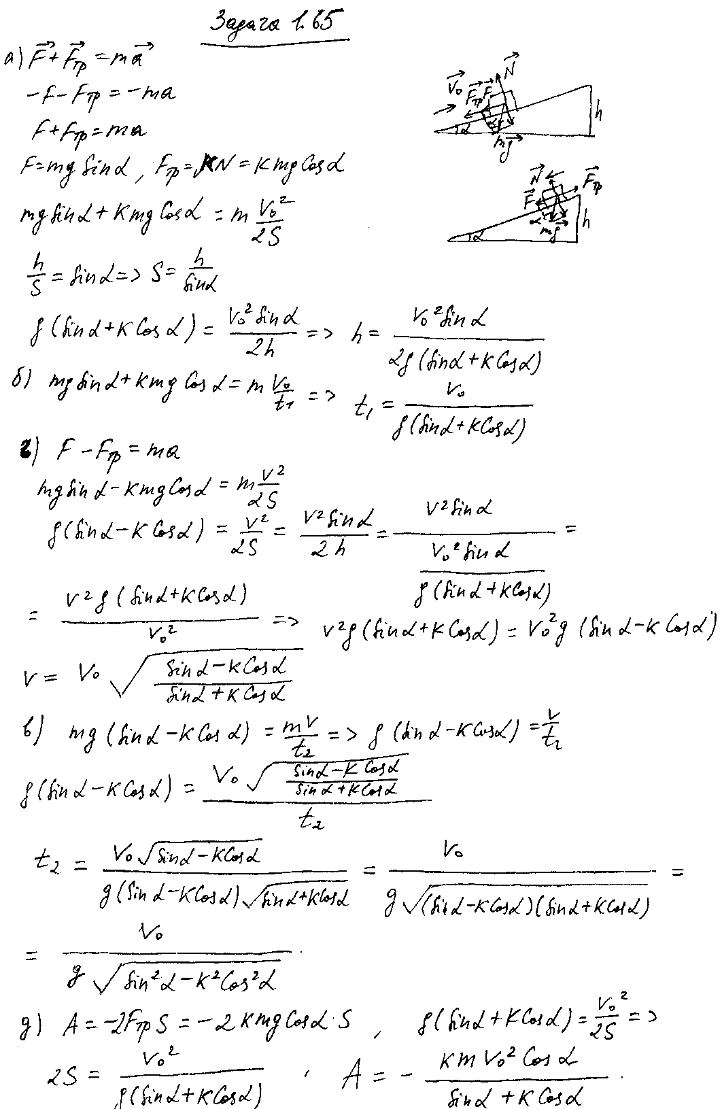 Задача 1.65
а) F⃗ + F⃗тр = ma⃗
-F - Fтр = -ma
F + Fтр = ma
F = mg Sinα, Fтр = KN = Kmg Cosα
mg Sinα + Kmg Cosα = m V₀²/2S
h/S = Sinα => S = h/Sinα
g(Sinα + K Cosα) = V₀² Sinα/2h => h = V₀² Sinα/2g(Sinα + K Cosα)
б) mg Sinα + Kmg Cosα = m V₀/t₁ => t₁ = V₀/g(Sinα + K Cosα)
г) F - Fтр = ma
mg Sinα - Kmg Cosα = m V²/2S
g(Sinα - K Cosα) = V²/2S = V² Sinα/2h = V² Sinα/(V₀² Sinα/g(Sinα + K Cosα)) =
= V² g(Sinα + K Cosα)/V₀² => V² g(Sinα + K Cosα) = V₀² g(Sinα - K Cosα)
V = V₀ √((Sinα - K Cosα)/(Sinα + K Cosα))
в) mg(Sinα - K Cosα) = mV/t₂ => g(Sinα - K Cosα) = V/t₂
g(Sinα - K Cosα) = V₀ √((Sinα - K Cosα)/(Sinα + K Cosα))/t₂
t₂ = V₀ √(Sinα - K Cosα)/g(Sinα - K Cosα) √(Sinα + K Cosα) = V₀/g √((Sinα - K Cosα)(Sinα + K Cosα)) =
= V₀/g √(Sin²α - K² Cos²α).
д) A = -2Fтр S = -2Kmg Cosα · S, g(Sinα + K Cosα) = V₀²/2S =>
2S = V₀²/g(Sinα + K Cosα), A = - K m V₀² Cosα/(Sinα + K Cosα).
V⃗₀ F⃗тр F⃗ N⃗ α α mg⃗ h
N⃗ F⃗ F⃗тр α α mg⃗ h